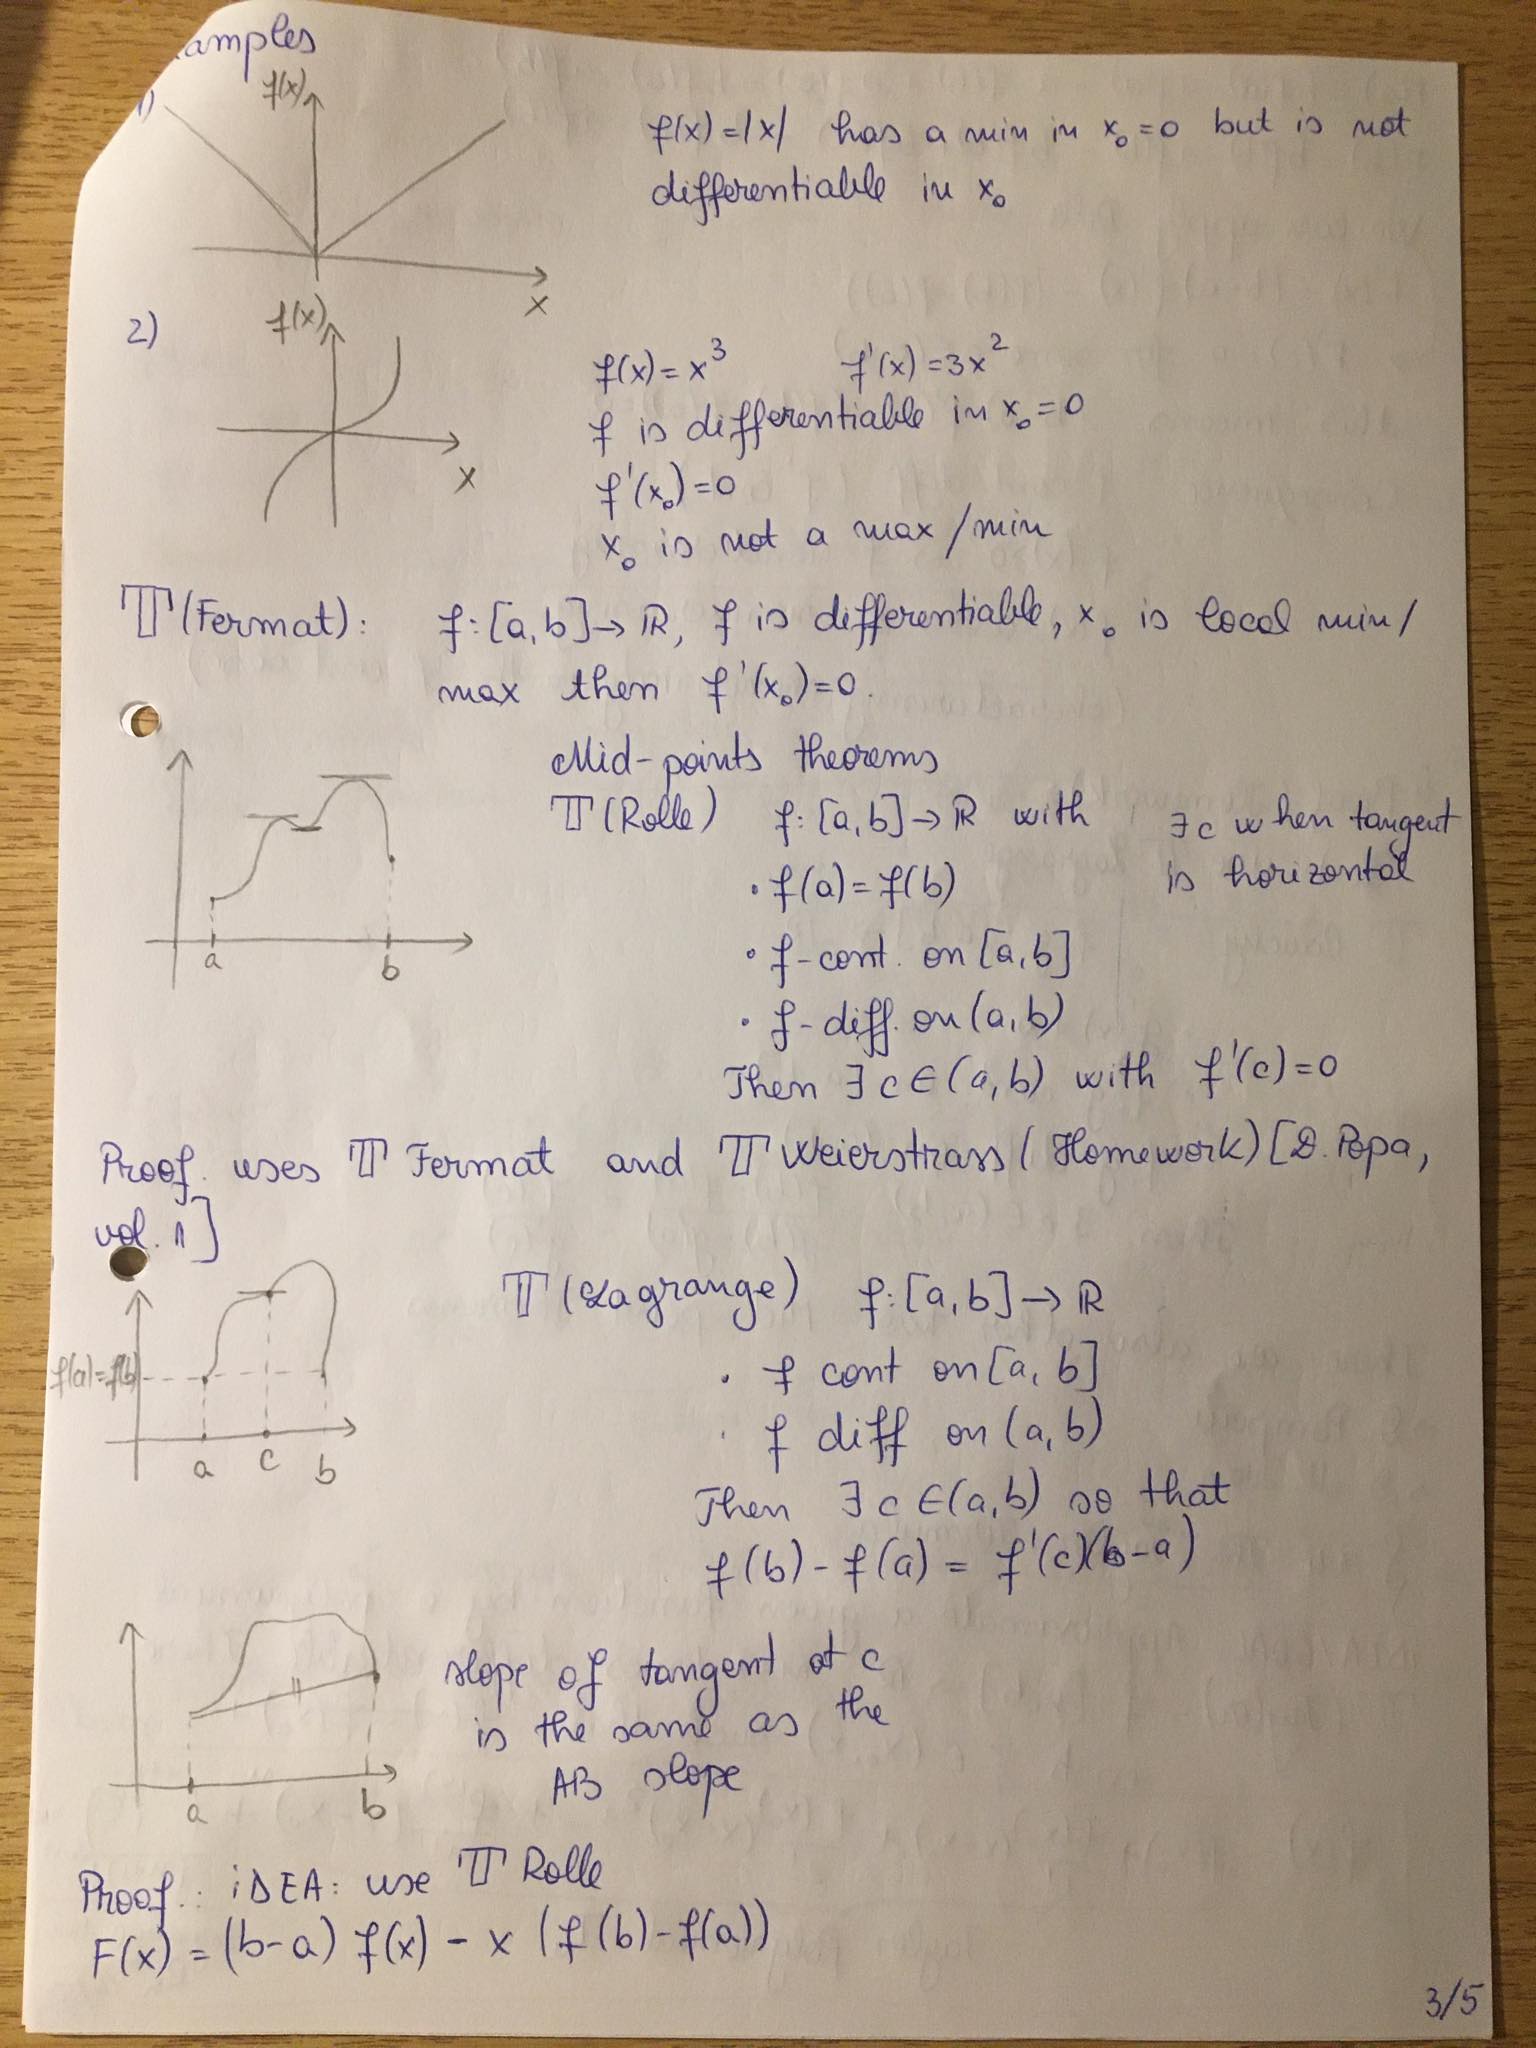 amples
1)
f(x)
x
f(x)=|x| has a min in x₀=0 but is not
differentiable in x₀
2)
f(x)
x
f(x)=x³ f'(x)=3x²
f is differentiable in x₀=0
f'(x₀)=0
x₀ is not a max/min
T(Fermat): f:[a,b]→ℝ, f is differentiable, x₀ is local min/
max then f'(x₀)=0.
a b
Mid-points theorems
T(Rolle) f:[a,b]→ℝ with
∃c when tangent
is horizontal
• f(a)=f(b)
• f-cont. on [a,b]
• f-diff. on (a,b)
Then ∃c∈(a,b) with f'(c)=0
Proof. uses T Fermat and T Weierstrass (Homework) [D. Popa,
vol. 1]
f(a)=f(b)
a c b
T(Lagrange) f:[a,b]→ℝ
• f cont on [a,b]
• f diff on (a,b)
Then ∃c∈(a,b) so that
f(b)-f(a) = f'(c)(b-a)
a b
slope of tangent at c
is the same as the
AB slope
Proof.: iDEA: use T Rolle
F(x) = (b-a) f(x) - x (f(b)-f(a))
3/5